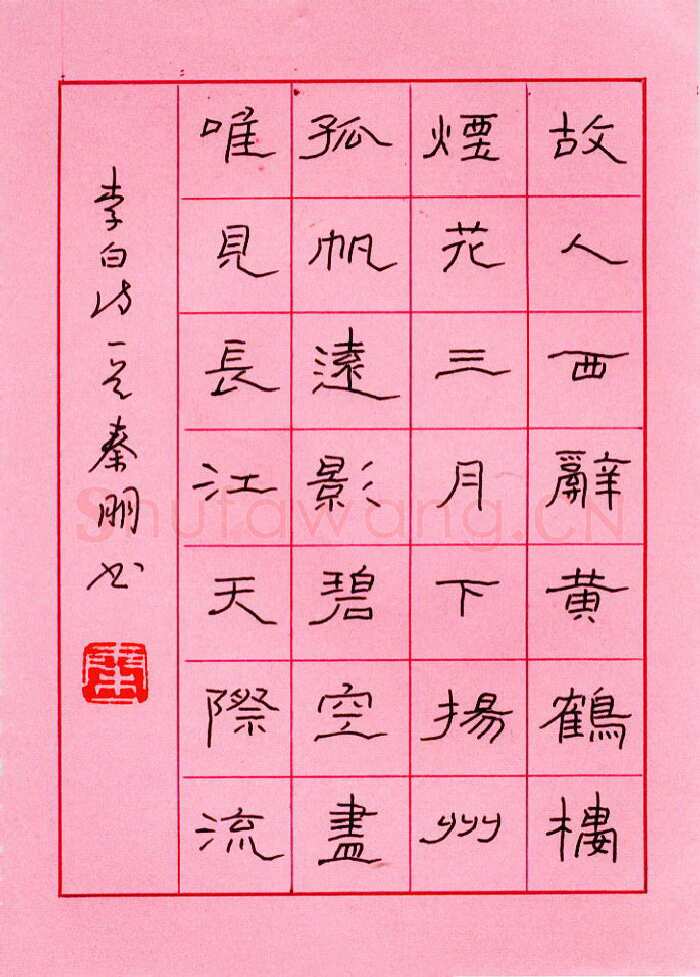 故人西辭黃鶴樓
煙花三月下揚州
孤帆遠影碧空盡
唯見長江天際流
李白诗一首秦朋书
Shufawang.CN